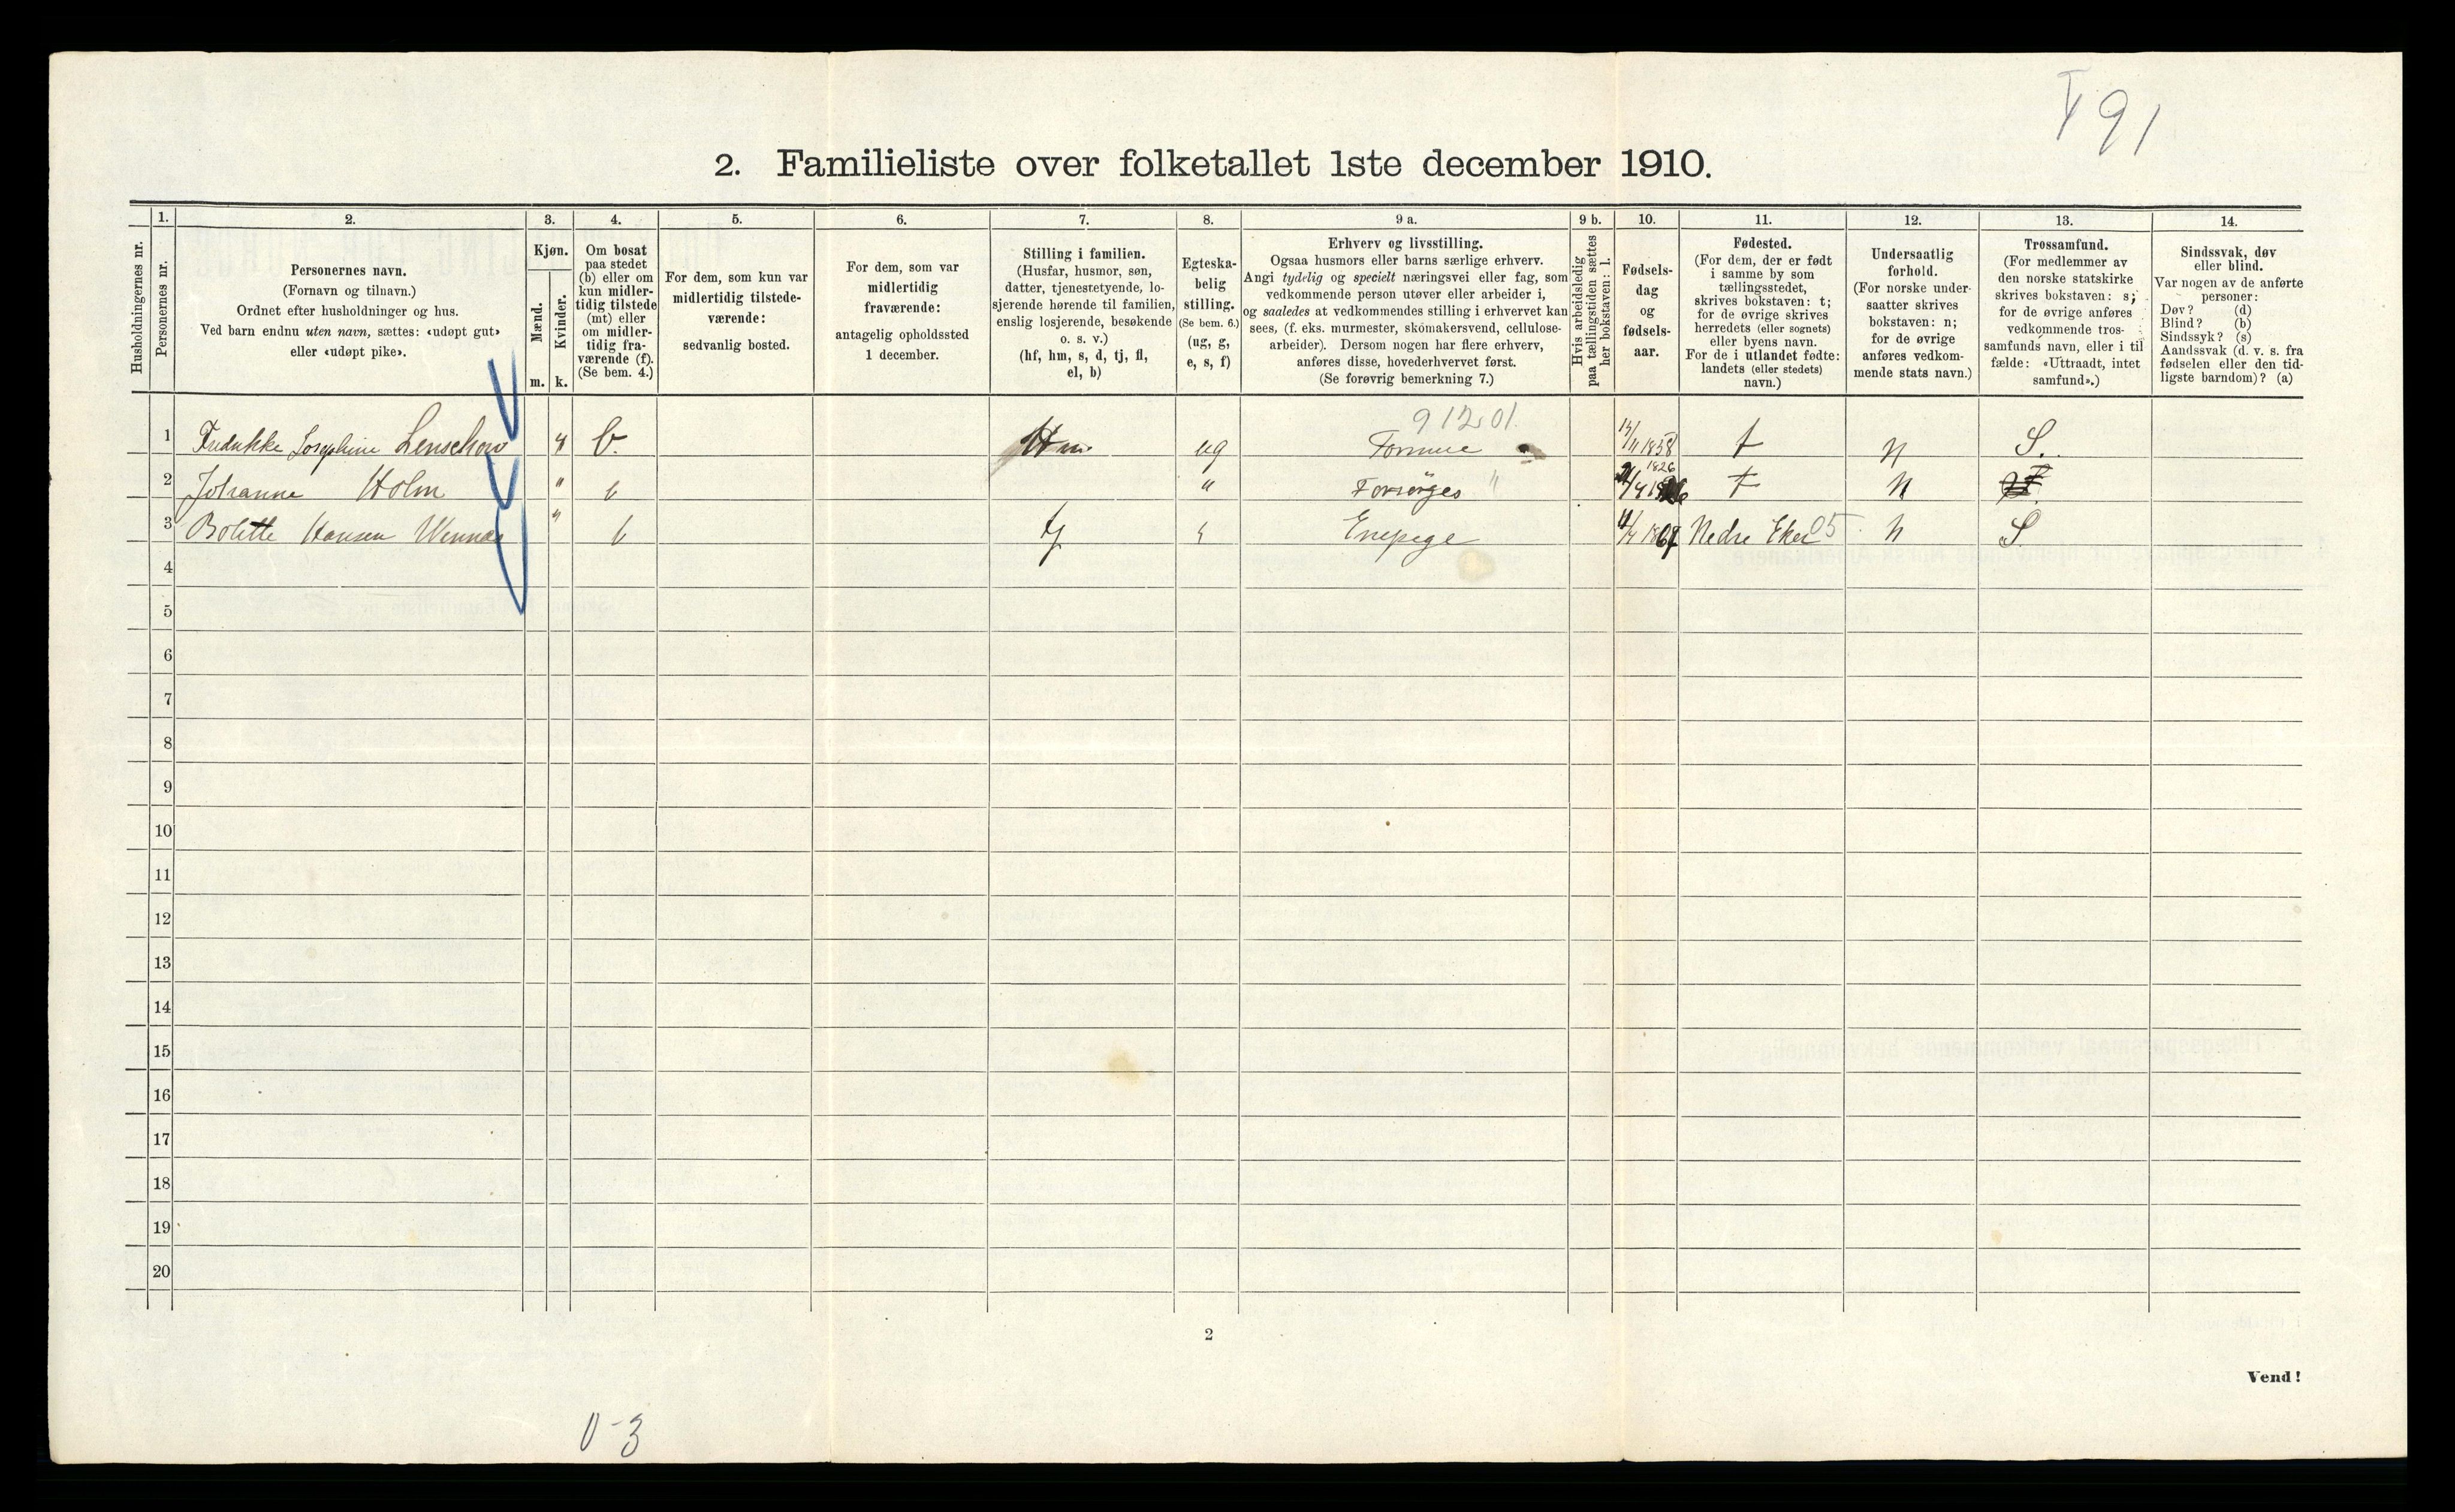 V 91
2. Familieliste over folketallet 1ste december 1910.
1. 2. 3. 4. 5. 6. 7. 8. 9 a. 9 b. 10. 11. 12. 13. 14.
Husholdningernes nr.
Personernes nr.
Personernes navn.
(Fornavn og tilnavn.)
Ordnet efter husholdninger og hus.
Ved barn endnu uten navn, sættes: «udøpt gut»
eller «udøpt pike».
Kjøn.
Mænd.
Kvinder.
m. k.
Om bosat
paa stedet
(b) eller om
kun midler-
tidig tilstede
(mt) eller
om midler-
tidig fra-
værende (f).
(Se bem. 4.)
For dem, som kun var
midlertidig tilstede-
værende:
sedvanlig bosted.
For dem, som var
midlertidig
fraværende:
antagelig opholdssted
1 december.
Stilling i familien.
(Husfar, husmor, søn,
datter, tjenestetyende, lo-
sjerende hørende til familien,
enslig losjerende, besøkende
o. s. v.)
(hf, hm, s, d, tj, fl,
el, b)
Egteska-
belig
stilling.
(Se bem. 6.)
(ug, g,
e, s, f)
Erhverv og livsstilling.
Ogsaa husmors eller barns særlige erhverv.
Angi tydelig og specielt næringsvei eller fag, som
vedkommende person utøver eller arbeider i,
og saaledes at vedkommendes stilling i erhvervet kan
sees, (f. eks. murmester, skomakersvend, cellulose-
arbeider). Dersom nogen har flere erhverv,
anføres disse, hovederhvervet først.
(Se forøvrig bemerkning 7.)
Hvis arbeidsledig
paa tællingstiden sættes
her bokstaven: l.
Fødsels-
dag
og
fødsels-
aar.
Fødested.
(For dem, der er født
i samme by som
tællingsstedet,
skrives bokstaven: t;
for de øvrige skrives
herredets (eller sognets)
eller byens navn.
For de i utlandet fødte:
landets (eller stedets)
navn.)
Undersaatlig
forhold.
(For norske under-
saatter skrives
bokstaven: n;
for de øvrige
anføres vedkom-
mende stats navn.)
Trossamfund.
(For medlemmer av
den norske statskirke
skrives bokstaven: s;
for de øvrige anføres
vedkommende tros-
samfunds navn, eller i til
fælde: «Uttraadt, intet
samfund».)
Sindssvak, døv
eller blind.
Var nogen av de anførte
personer:
Døv? (d)
Blind? (b)
Sindssyk? (s)
Aandssvak (d. v. s. fra
fødselen eller den tid-
ligste barndom)? (a)
91201.
1 Josephine Lenschow b. Hm ug Formue 1838 t n S.
2 Johanne Holm " b " Forsørges " 1826 t n
3 Bolette Hansen " b tj Enepige Nedre Eker 05 n S
4
5
6
7
8
9
10
11
12
13
14
15
16
17
18
19
20
2
Vend!
0-3